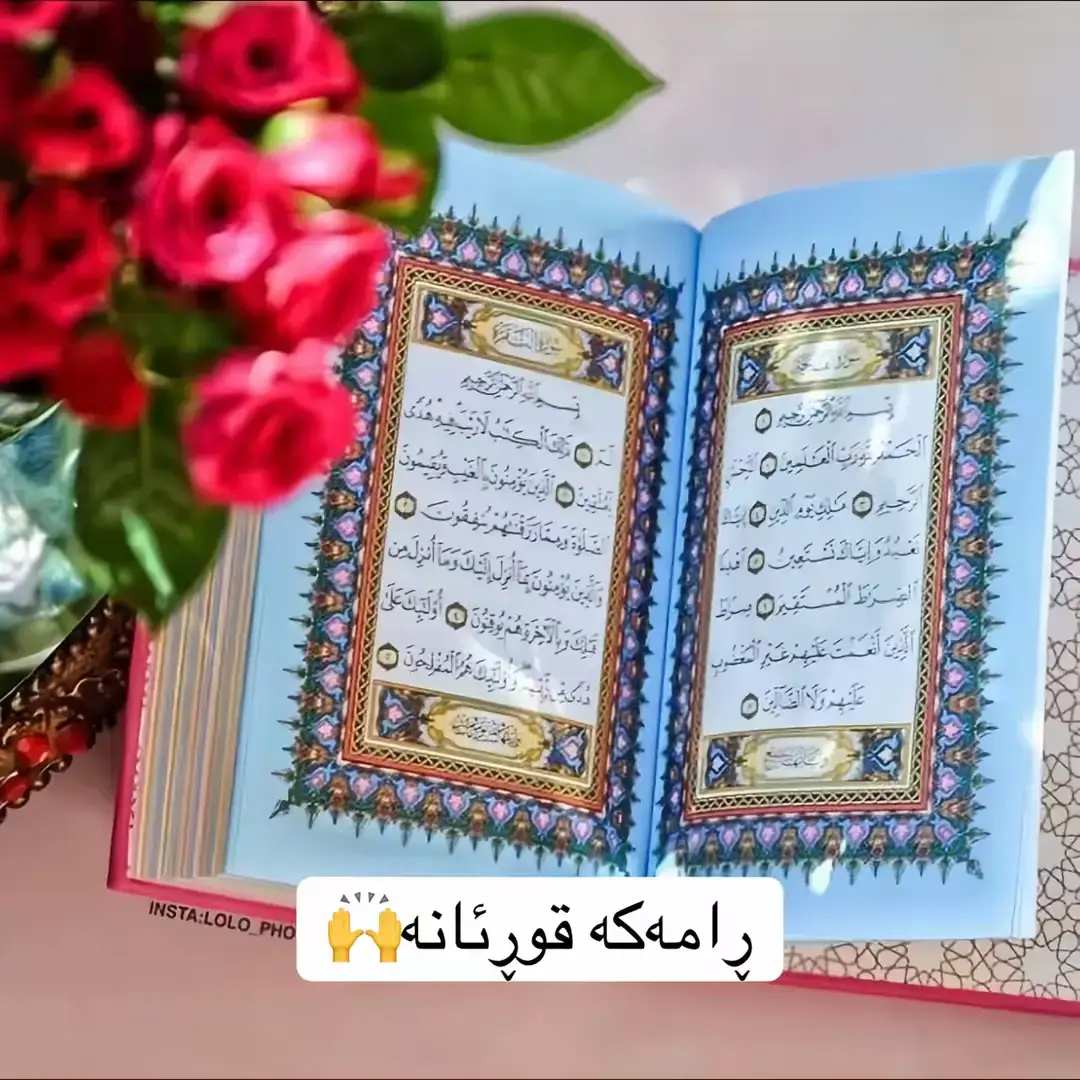 بِسْمِ ٱللَّهِ ٱلرَّحْمَٰنِ ٱلرَّحِيمِ ١
ٱلْحَمْدُ لِلَّهِ رَبِّ ٱلْعَٰلَمِينَ ٢ ٱلرَّحْمَٰنِ
ٱلرَّحِيمِ ٣ مَٰلِكِ يَوْمِ ٱلدِّينِ ٤ إِيَّاكَ
نَعْبُدُ وَإِيَّاكَ نَسْتَعِينُ ٥ ٱهْدِنَا
ٱلصِّرَٰطَ ٱلْمُسْتَقِيمَ ٦ صِرَٰطَ
ٱلَّذِينَ أَنْعَمْتَ عَلَيْهِمْ غَيْرِ ٱلْمَغْضُوبِ
عَلَيْهِمْ وَلَا ٱلضَّآلِّينَ ٧
سُورَةُ ٱلْبَقَرَةِ
بِسْمِ ٱللَّهِ ٱلرَّحْمَٰنِ ٱلرَّحِيمِ
الٓمٓ ١ ذَٰلِكَ ٱلْكِتَٰبُ لَا رَيْبَ فِيهِ هُدًى
لِّلْمُتَّقِينَ ٢ ٱلَّذِينَ يُؤْمِنُونَ بِٱلْغَيْبِ وَيُقِيمُونَ
ٱلصَّلَوٰةَ وَمِمَّا رَزَقْنَٰهُمْ يُنفِقُونَ ٣
وَٱلَّذِينَ يُؤْمِنُونَ بِمَآ أُنزِلَ إِلَيْكَ وَمَآ أُنزِلَ مِن
قَبْلِكَ وَبِٱلْءَاخِرَةِ هُمْ يُوقِنُونَ ٤ أُو۟لَٰٓئِكَ عَلَىٰ
هُدًى مِّن رَّبِّهِمْ وَأُو۟لَٰٓئِكَ هُمُ ٱلْمُفْلِحُونَ ٥
INSTA:LOLO_PHO
ڕامەکە قوڕئانە🙌